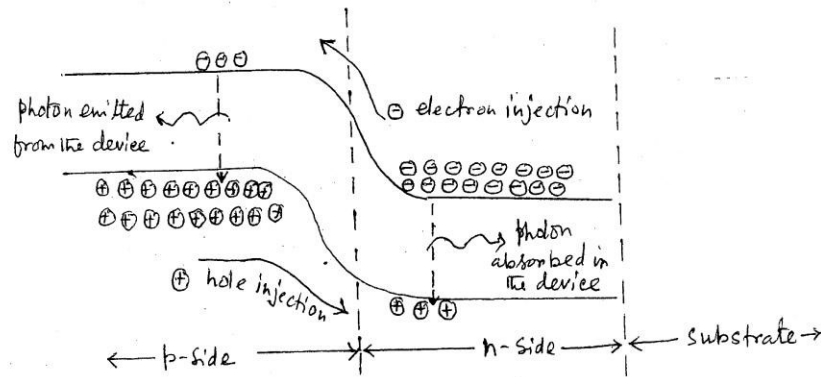 ⊖⊖⊖
photon emitted
from the device
⊖ electron injection
⊖⊖⊖⊖⊖⊖⊖⊖
⊖⊖⊖⊖⊖⊖⊖⊖
⊕⊕⊕⊕⊕⊕⊕⊕⊕
⊕⊕⊕⊕⊕⊕⊕⊕
photon
absorbed in
the device
⊕ hole injection
⊕⊕⊕
p-side
n-side
substrate